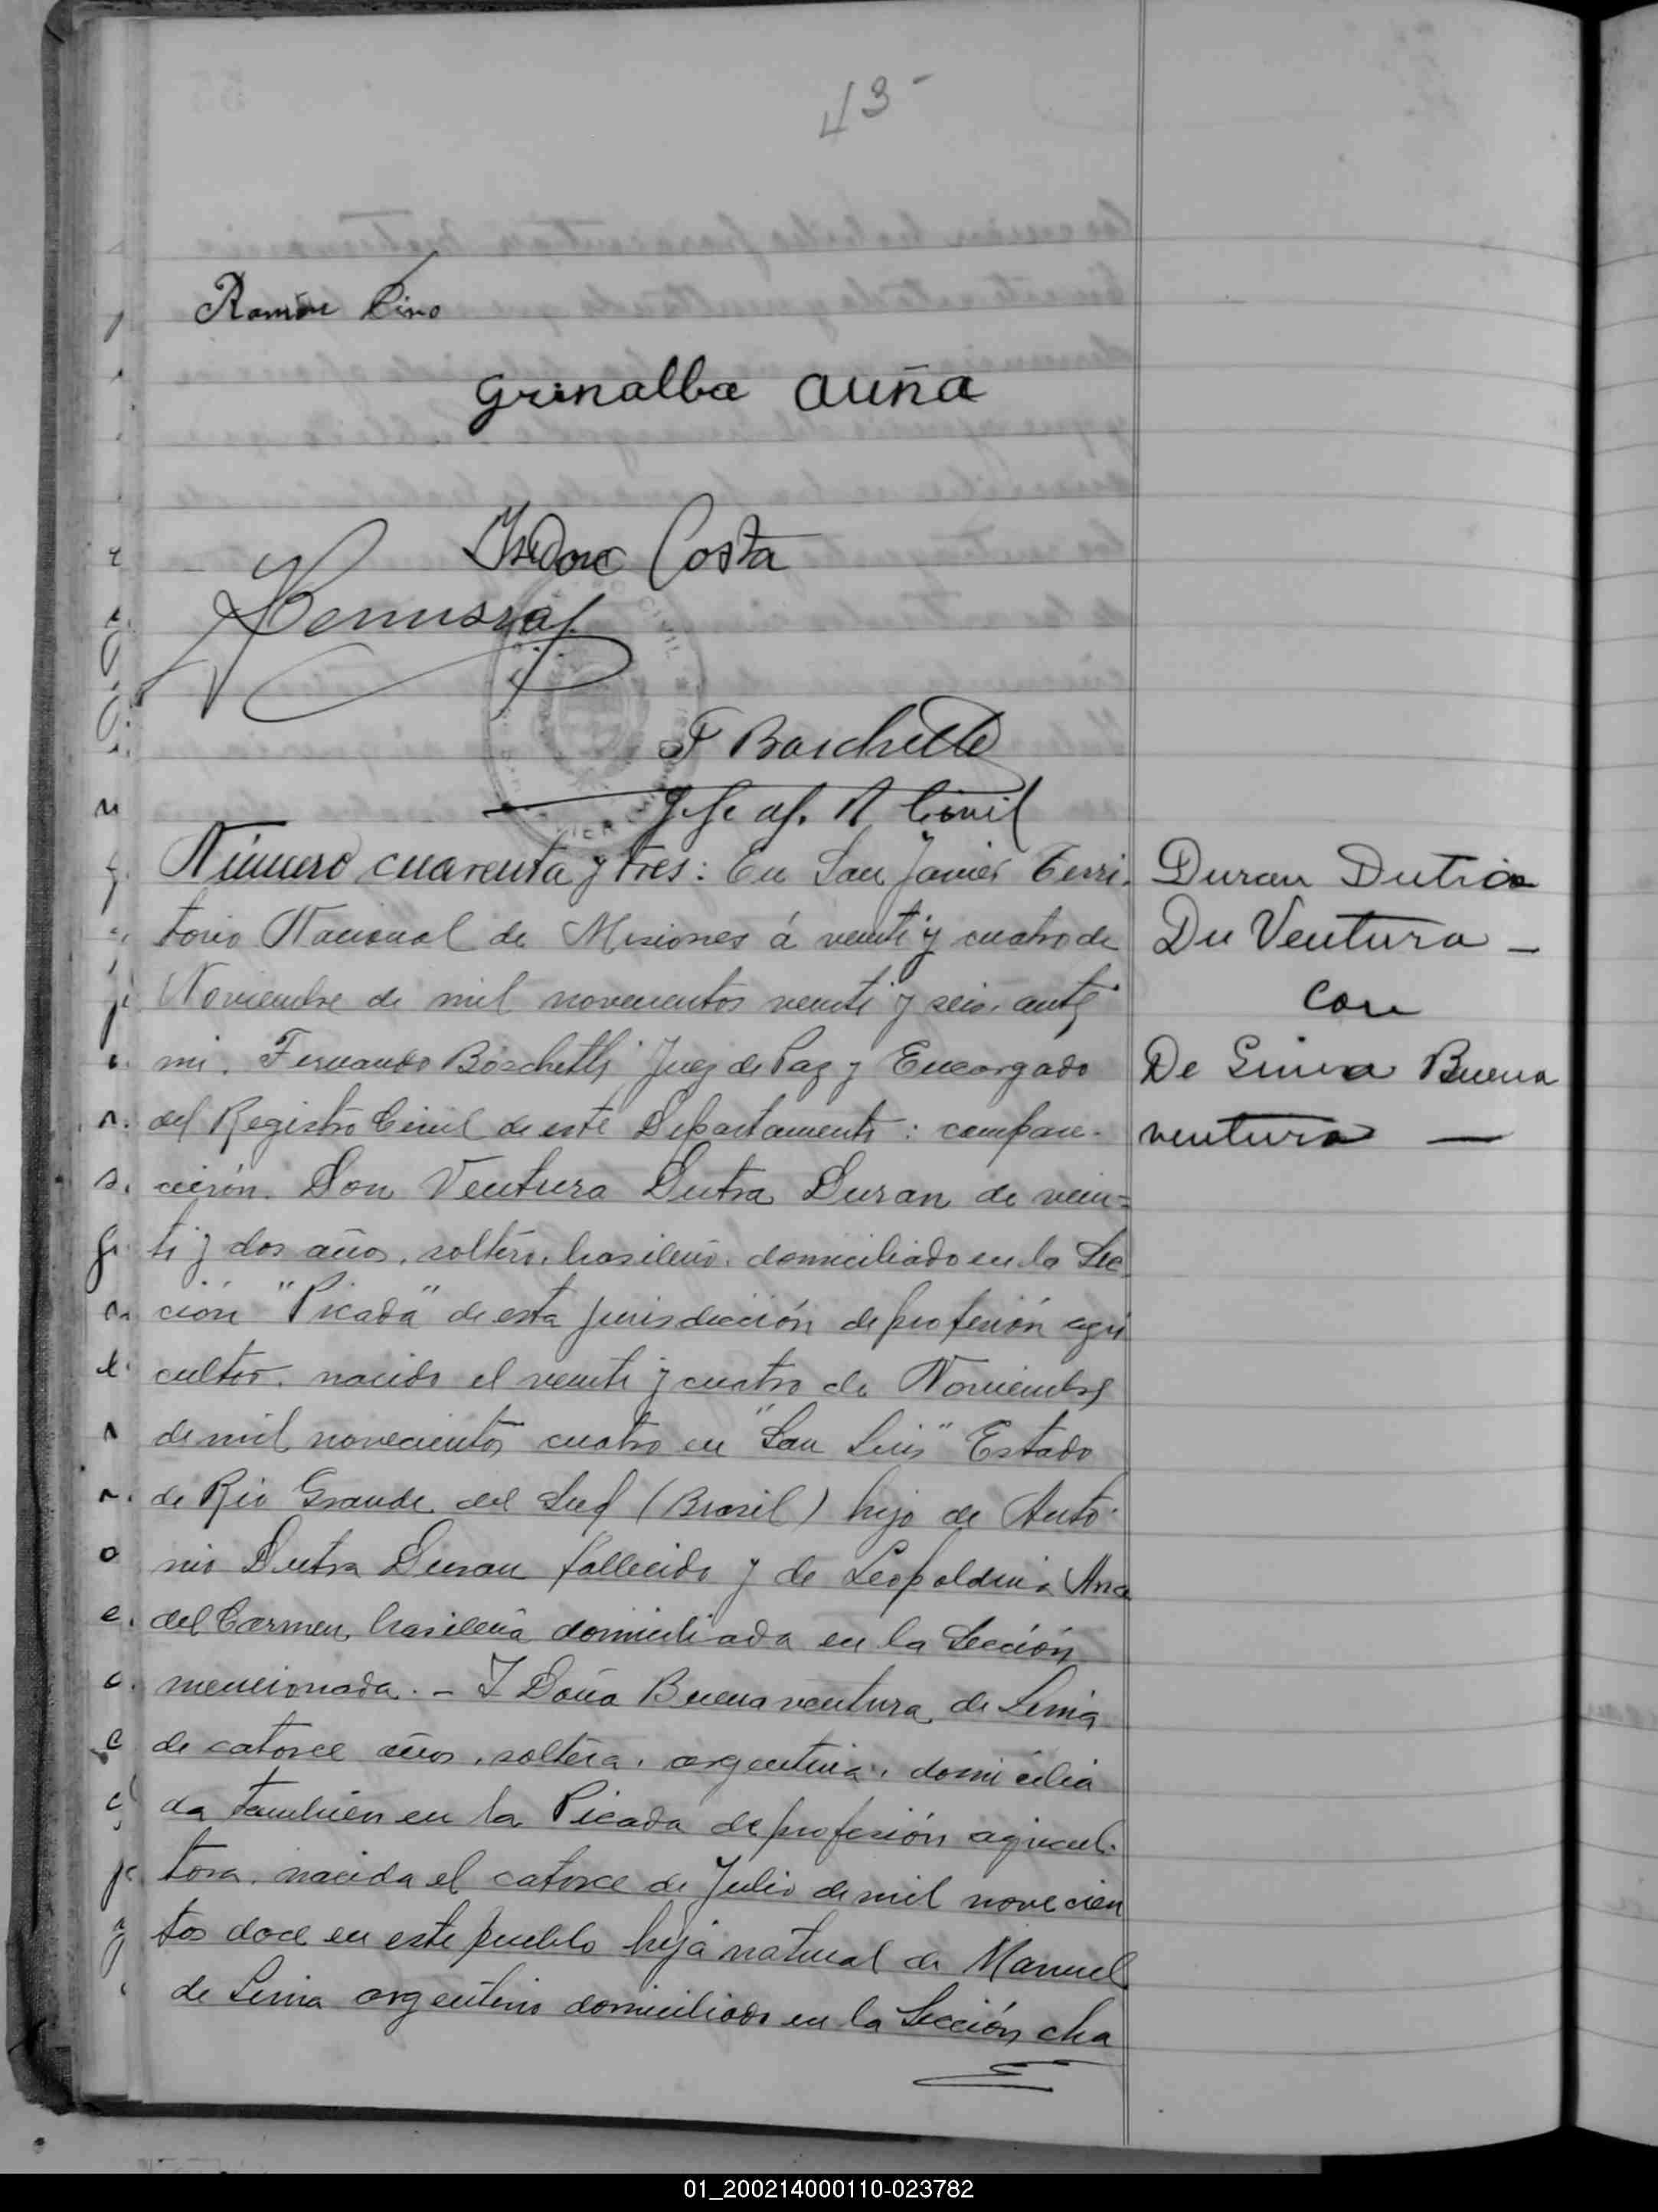 43-
Ramón Pino
Grinalba Auña
Isidore Costa
F Boschetti
Jefe af. R Civil
Número cuarenta y tres: En San Javier Terri-
torio Nacional de Misiones á veinte y cuatro de
Noviembre de mil novecientos veinte y seis, ante
mi, Fernando Boschetti Juez de Paz y Encargado
del Registro Civil de este Departamento: compare-
cieron. Don Ventura Dutra Duran de vein-
ti y dos años, soltero, brasileño, domiciliado en la Sec
ción "Picada" de esta jurisdicción de profesión agri
cultor, nacido el veinte y cuatro de Noviembre
de mil novecientos cuatro en "San Luis" Estado
de Rio Grande del Sud (Brasil) hijo de Anto-
nio Dutra Duran fallecido y de Leopoldina Ana
del Carmen, brasileña domiciliada en la Sección
mencionada.- Y Doña Buenaventura de Lima
de catorce años, soltera, argentina, domicilia
da también en la Picada de profesión agricul-
tora, nacida el catorce de Julio de mil novecien
tos doce en este pueblo hija natural de Manuel
de Lima argentino domiciliado en la Sección cha
Duran Dutra
Du Ventura -
con
De Lima Buena
ventura —
01_200214000110-023782